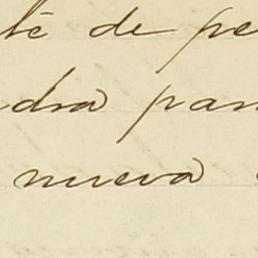 té de pe
dra par
nueva